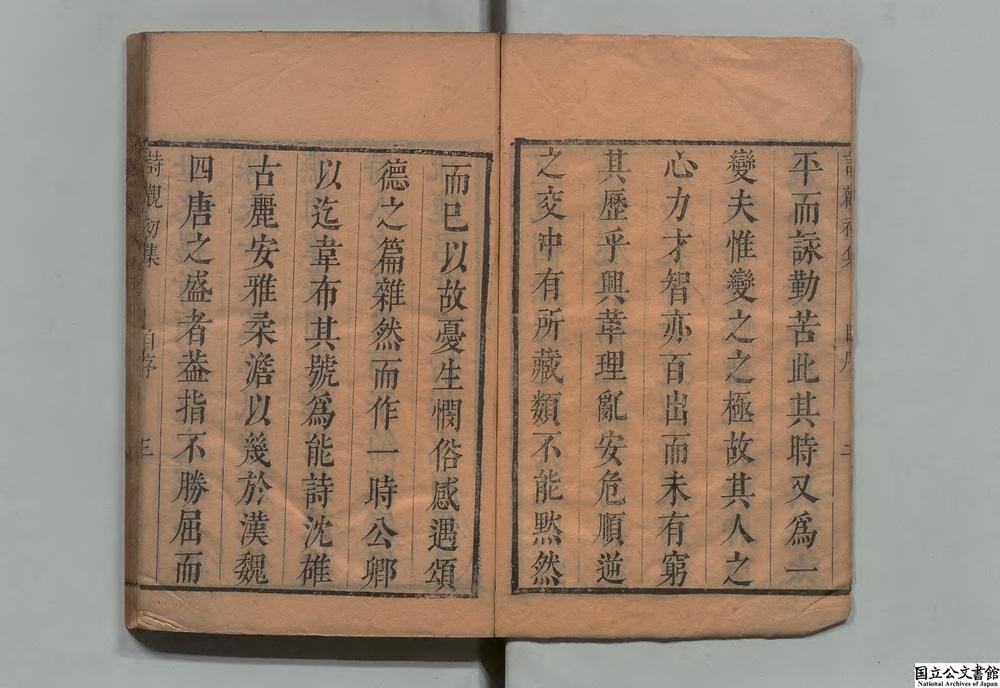 平而詠勤苦此其時又爲一
變夫惟變之之極故其人之
心力才智亦百出而未有窮
其歷乎興革理亂安危順逆
之交中有所藏類不能默然
而已以故憂生憫俗感遇頌
德之篇雜然而作一時公卿
以迄韋布其號爲能詩沈雄
古麗安雅柔澹以幾於漢魏
四唐之盛者葢指不勝屈而
詩觀初集 自序 三
国立公文書館
National Archives of Japan